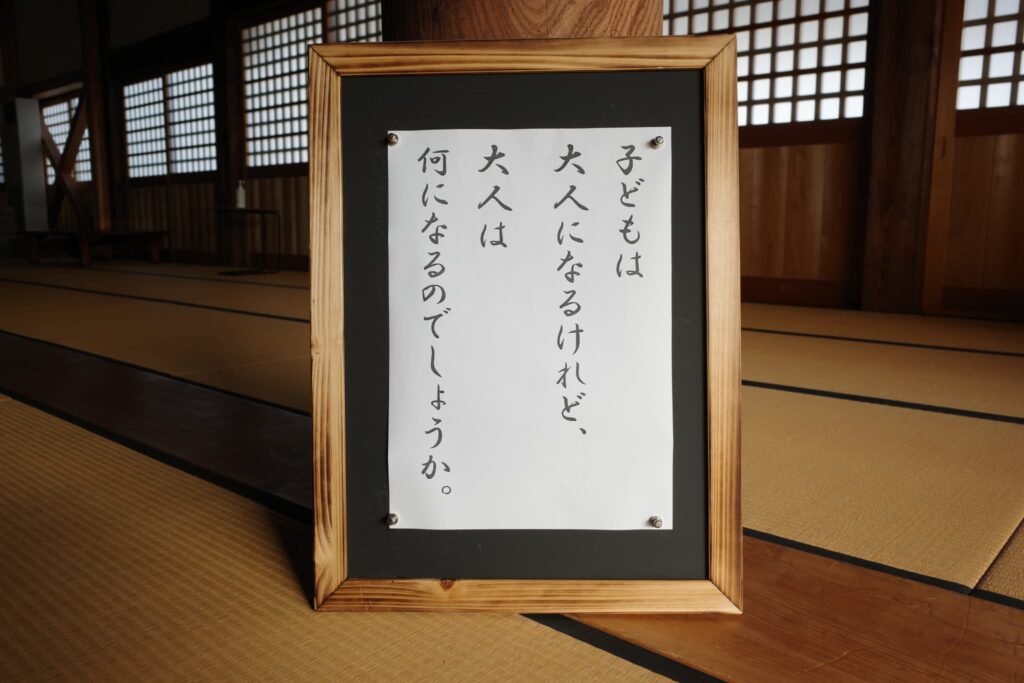 子どもは
大人になるけれど、
大人は
何になるのでしょうか。